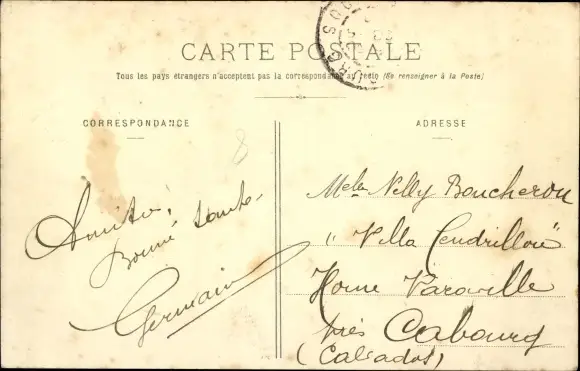 CARTE POSTALE
Tous les pays étrangers n'acceptent pas la correspondance au recto (Se renseigner à la Poste)
CORRESPONDANCE
ADRESSE
8
Amitié,
Bonne santé
Germain
Melle Nelly Boucheron
"Villa Cendrillon"
Home Varaville
près Cabourg
(Calvados)